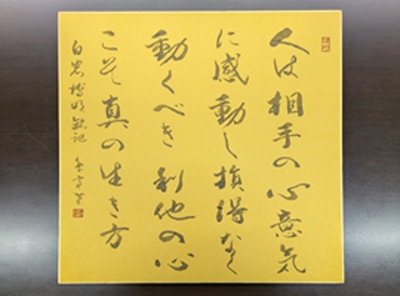 人は相手の心意気
に感動し損得なく
動くべき 利他の心
こそ真の生き方
白岩